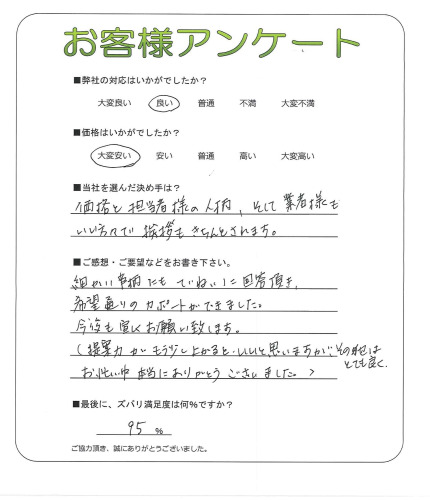 お客様アンケート
■弊社の対応はいかがでしたか？
大変良い 良い 普通 不満 大変不満
■価格はいかがでしたか？
大変安い 安い 普通 高い 大変高い
■当社を選んだ決め手は？
価格と担当者様の人柄、そして業者様も
いい方々で挨拶もきちんとされます。
■ご感想・ご要望などをお書き下さい。
細かい事柄にもていねいに回答頂き、
希望通りのカポートができました。
今後も宜しくお願い致します。
(提案力がもう少し上がるといいと思いますが、その他は
とても良く、
お忙い中本当にありがとうございました。)
■最後に、ズバリ満足度は何％ですか？
95 %
ご協力頂き、誠にありがとうございました。